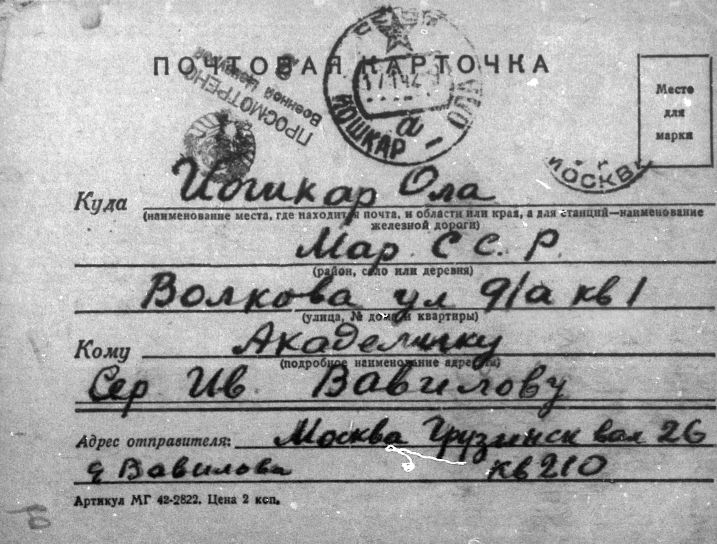 ПОЧТОВАЯ КАРТОЧКА
ПРОСМОТРЕНО
Военной Цензурой
ЙОШКАР-ОЛА
а
Место
для
марки
МОСКВА
Куда Иошкар Ола
(наименование места, где находится почта, и области или края, а для станций—наименование
железной дороги)
Мар. С С. Р.
(район, село или деревня)
Волкова ул 9/а кв 1
(улица, № дома и квартиры)
Кому Академику
(подробное наименование адресата)
Сер Ив. Вавилову
Адрес отправителя: Москва Грузинск вал 26
Вавилова кв 210
Артикул МГ 42-2822. Цена 2 коп.